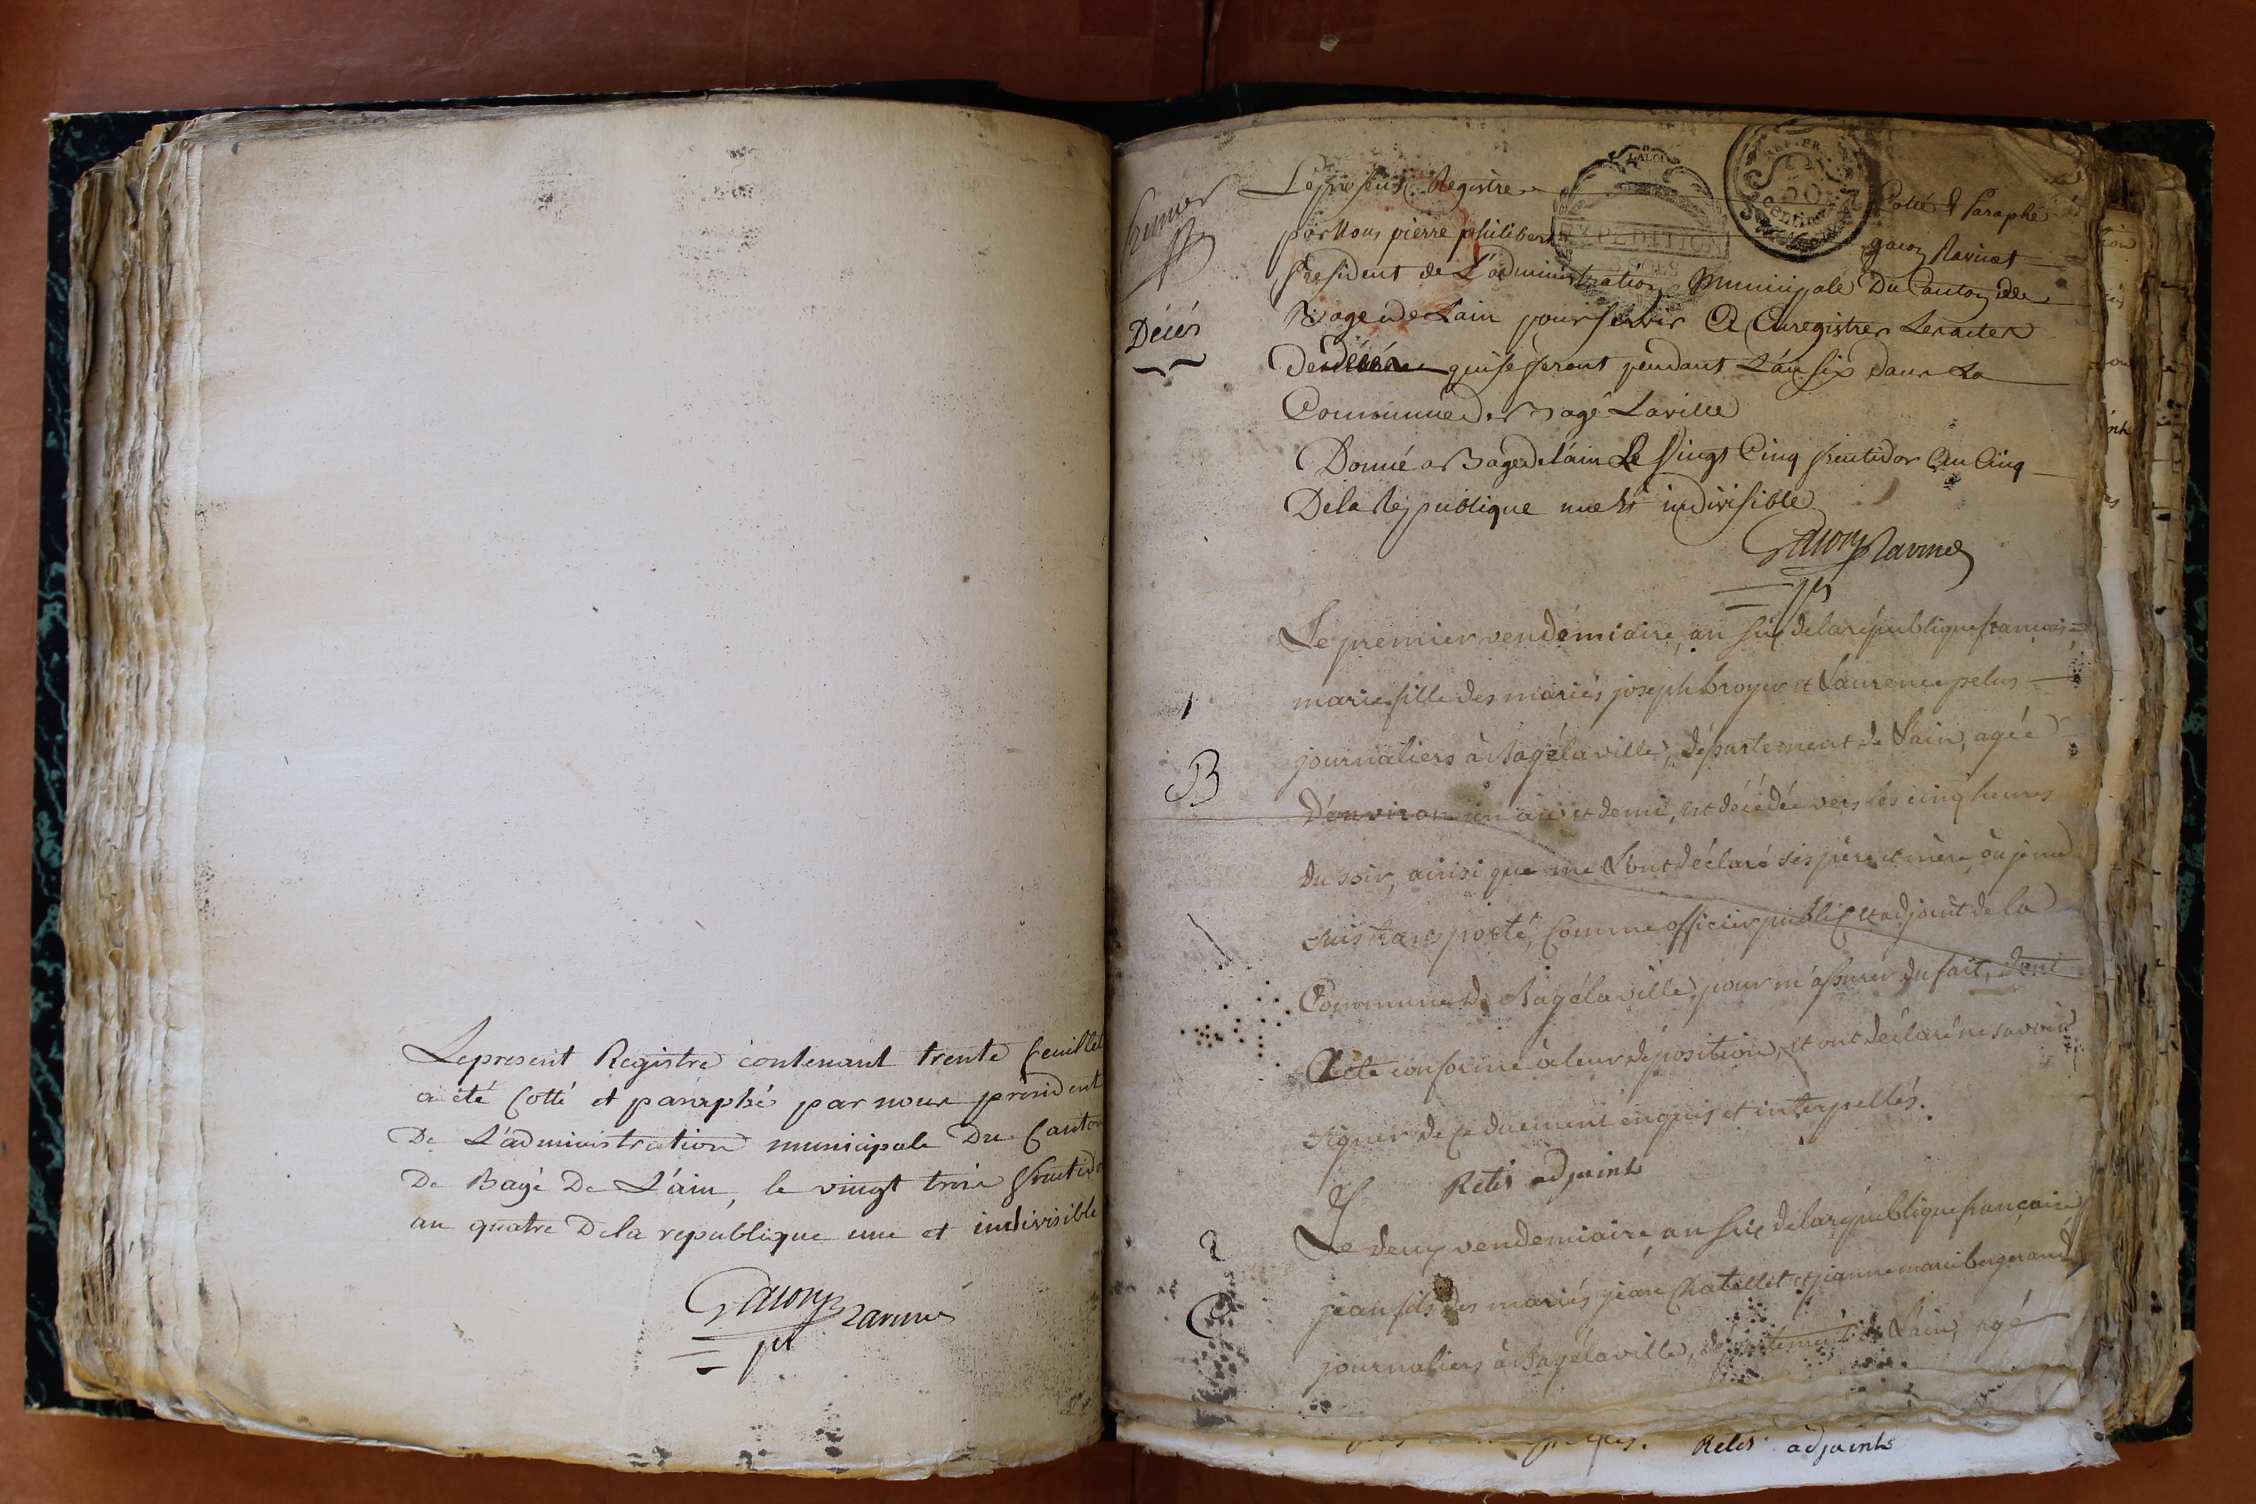 Le present Registre contenant trente feuillet
a été Cotté et paraphé par nous président
De L'administration municipale Du Canton
De Bagé De L'ain, le vingt trois fructido
an quatre De la republique une et indivisible
Gacon Ravinet
pt
premier
Décés
Le present Registre Cotté & Paraphé
par Nous pierre philibert gacon Ravinet
president de L'administration Municipale Du Canton de
Bagé de Lain pour servir A Enregistrer Les actes
De décés qui se feront pendant L'an six dans La
Commune de Bagé Laville
Donné a Bagé de lain Le Vingt Cinq fructidor An Cinq
De la Republique une et indivisible
Gacon Ravinet
pt
LA LOI
EXPEDITION
SOLS
REP. FR.
50
Centimes
1
B
Le premier vendémiaire, an six de la république française,
marie fille des mariés joseph broyer et Laurence pelus
journaliers à Bagélaville, département de Lain, agée
D'environ un an et demi, est décédée vers les cinq heures
du soir, ainsi que me L'ont déclaré ses père et mère, où je me
suis transporté, Comme officier public et adjoint de la
Commune de Bagélaville, pour m'assurer du fait, dont
Acte conforme à leur déposition, et ont déclaré ne savoir
signer de ce duement enquis et interpellés.
Retis adjoint
2
C
Le deux vendemiaire an six de la république française
jean fils des mariés jean Chatellet et jeanne marie bergerand
journaliers à Bagélaville, département de Lain, agé
Retis adjoint